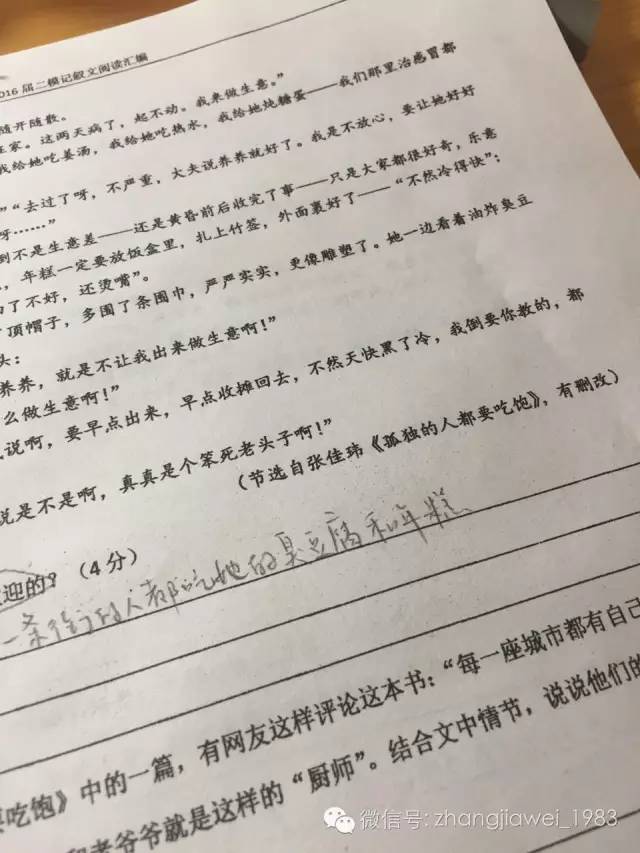 016 届二模记叙文阅读汇编
随开随散。
在家。这两天病了，起不动。我来做生意。”
我给她吃姜汤，我给她吃热水，我给她炖糖蛋——我们那里治感冒都
”“去过了呀，不严重，大夫说养养就好了。我是不放心，要让她好好
呀……”
到不是生意差——还是黄昏前后收完了事——只是大家都很好奇，乐意
，年糕一定要放饭盒里，扎上竹签，外面裹好了——“不然冷得快”；
了不好，还烫嘴”。
顶帽子，多围了条围巾，严严实实，更像雕塑了。她一边看着油炸臭豆
头：
养养，就是不让我出来做生意啊！”
么做生意啊！”
说啊，要早点出来，早点收摊回去，不然天快黑了冷，我倒要你教的，都
说是不是啊，真真是个笨死老头子啊！”
（节选自张佳玮《孤独的人都要吃饱》，有删改）
迎的？（4分）
一条街的人都吃她的臭豆腐和年糕
吃饱》中的一篇，有网友这样评论这本书：“每一座城市都有自己
和老爷爷就是这样的“厨师”。结合文中情节，说说他们的
微信号: zhangjiawei_1983